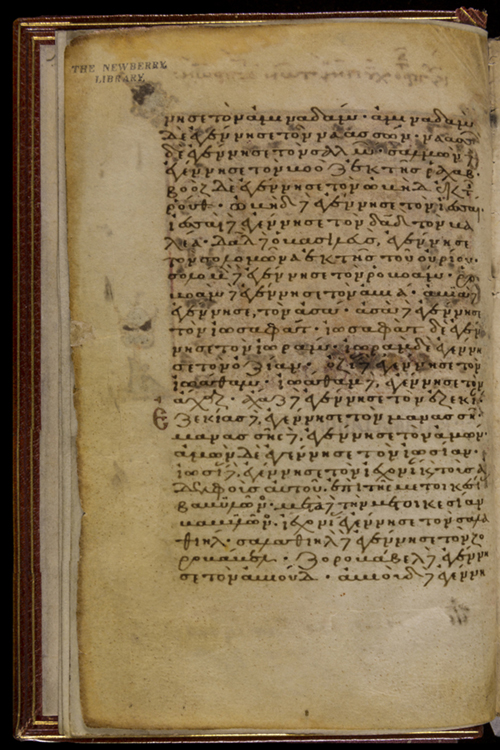 THE NEWBERRY
LIBRARY
νησε τὸν ἀμιναδάμ· ἀμιναδὰμ
δὲ ἐγέννησε τὸν ναασσών· ναασσὼν
δὲ ἐγέννησε τὸν σαλμών· σαλμὼν
ἐγέννησε τὸν βοὸζ ἐκ τῆς ραχάβ·
βοὸζ δὲ ἐγέννησε τὸν ὠβὴδ ἐκ τ
ρούθ· ὠβὴδ ἐγέννησε τὸν ἰεσσαί·
ἰεσσαὶ ἐγέννησε τὸν δαδ τὸν βα
λέα· δαδ ὁ βασιλεὺς, ἐγέννησε
τὸν σολομῶνα ἐκ τῆς τοῦ οὐρίου·
σολομὼν ἐγέννησε τὸν ροβοάμ· ρο
βοὰμ ἐγέννησε τὸν ἀβιά· ἀβιὰ
ἐγέννησε, τὸν ἀσά· ἀσὰ ἐγέννησε
τὸν ἰωσαφάτ· ἰωσαφὰτ δὲ ἐγέν
νησε τὸν ἰωράμ· ἰωρὰμ δὲ ἐγένν
σε τὸν ὀζίαν· ὀζί ἐγέννησε τὸν
ἰωάθαμ· ἰωάθαμ, ἐγέννησε τὸν
ἀχάζ· ἀχὰζ ἐγέννησε τὸν ἐζεκί
Ἐζεκίας, ἐγέννησε τὸν μανασσῆ·
μανασσῆς, ἐγέννησε τὸν ἀμών·
ἀμὼν δὲ ἐγέννησε τὸν ἰωσίαν·
ἰωσί, ἐγέννησε τὸν ἰεχονί κ τοὺς ἀ
δελφοὺς αὐτοῦ. ἐπὶ τῆς μετοικεσί
βαβυλῶνο· μετὰ τὴν μετοικεσίαν
βαβυλῶνο. ἰεχονί ἐγέννησε τὸν σαλα
θιήλ· σαλαθιὴλ ἐγέννησε τὸν ζο
ροβάβελ· Ζοροβάβελ ἐγένν
σε τὸν ἀβιούδ· ἀβιοὺδ ἐγένν